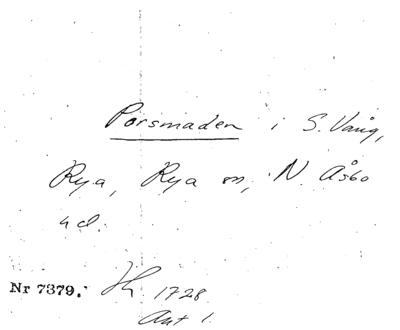 Porsmaden i S. Vång,
Rya, Rya sn, N. Åsbo
hd.
Nr 7379. Jh. 1728
Akt 1.